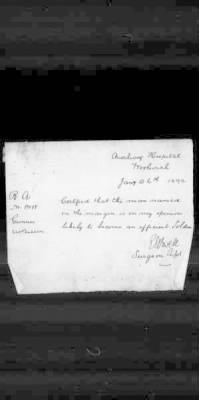 Auxiliary Hospital
Woolwich
Jany 26th 1892
R A
Gunner
Certified that the man named
in the margin is in my opinion
likely to become an efficient Soldier
Surgeon Capt